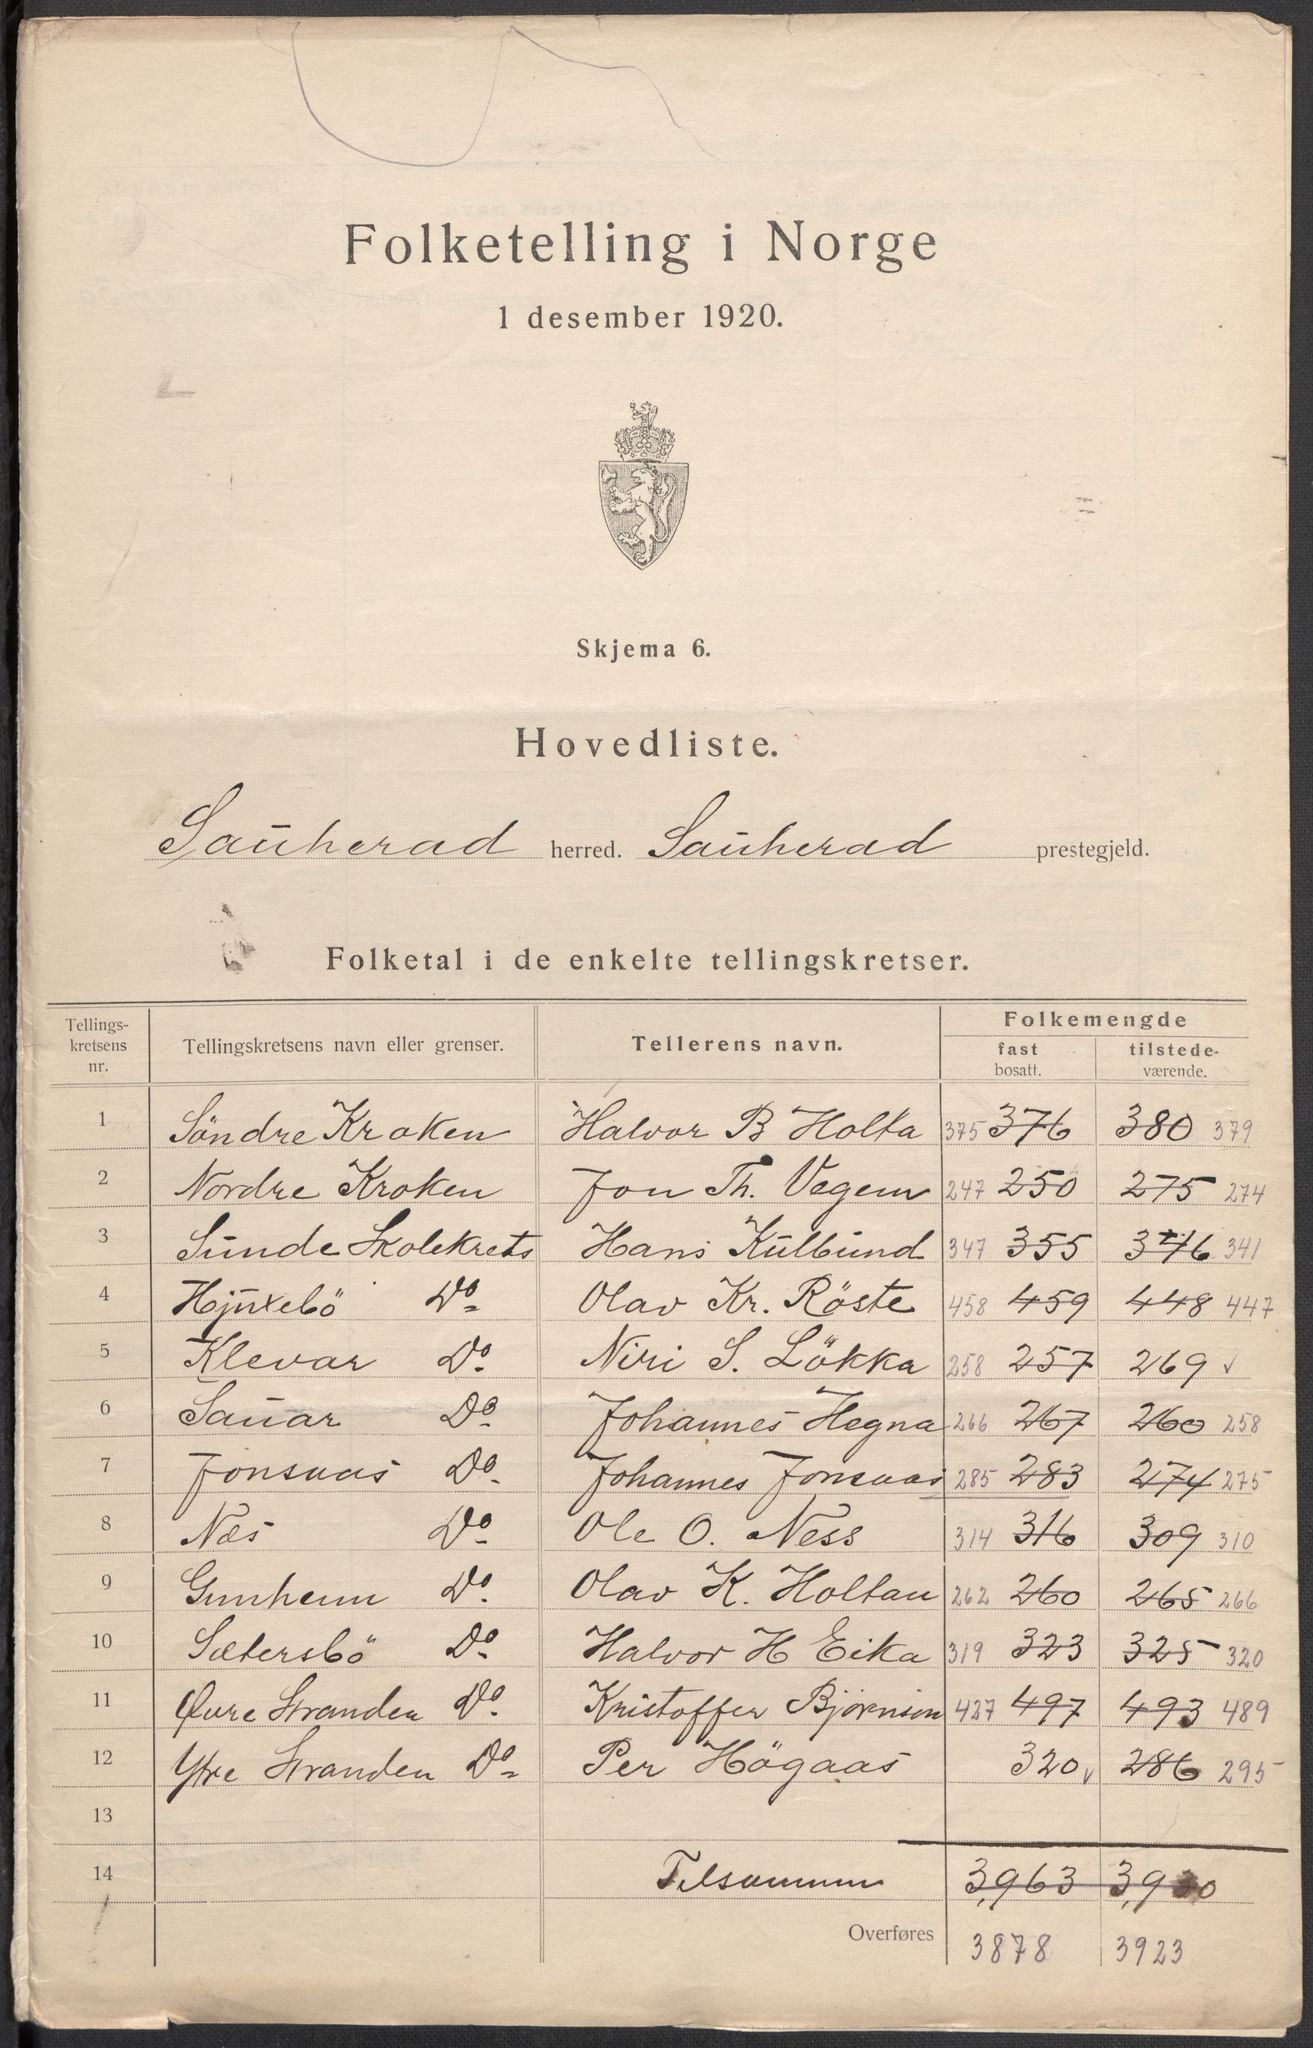 Folketelling i Norge
1 desember 1920.
Skjema 6.
Hovedliste.
Sauherad herred. Sauherad prestegjeld.
Folketal i de enkelte tellingskretser.
Tellings-kretsens nr. Tellingskretsens navn eller grenser. Tellerens navn. Folkemengde
fast bosatt. tilstede-værende.
1 Söndre Kroken Halvor B Holta 375 376 380 379
2 Nordre Kroken Jon Th. Vegem 247 250 275 274
3 Sunde Skolekrets Hans Kulbund 347 355 346 341
4 Hjuxebö Do Olav Kr. Röste 458 459 448 447
5 Klevar Do Niri S. Lökka 258 257 269 √
6 Sauar Do Johannes Hegna 266 267 260 258
7 Jonsaas Do Johannes Jonsaas 285 283 274 275
8 Næs Do Ole O. Ness 314 316 309 310
9 Gunheim Do Olav K. Holtan 262 260 265 266
10 Sætersbö Do Halvor H Eika 319 323 325 320
11 Øvre Stranden Do Kristoffer Bjørnson 427 497 493 489
12 Ytre Stranden Do Per Högaas 320 √ 286 295
13
14 Tilsammen 3,963 3,930
Overføres 3878 3923